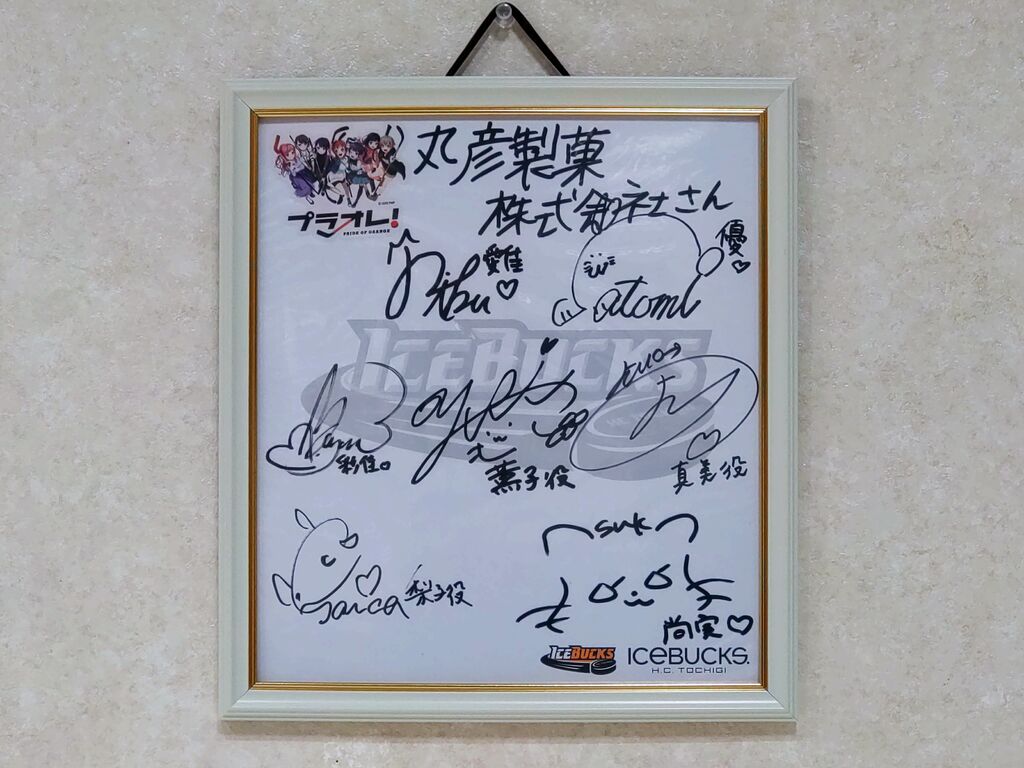 丸彦製菓
株式会社さん
プラオレ!
PRIDE OF ORANGE
愛佳
優
atomi
ICEBUCKS
彩佳
薫子役
真美役
梨子役
suk
尚実
ICEBUCKS
ICEBUCKS.
H.C. TOCHIGI